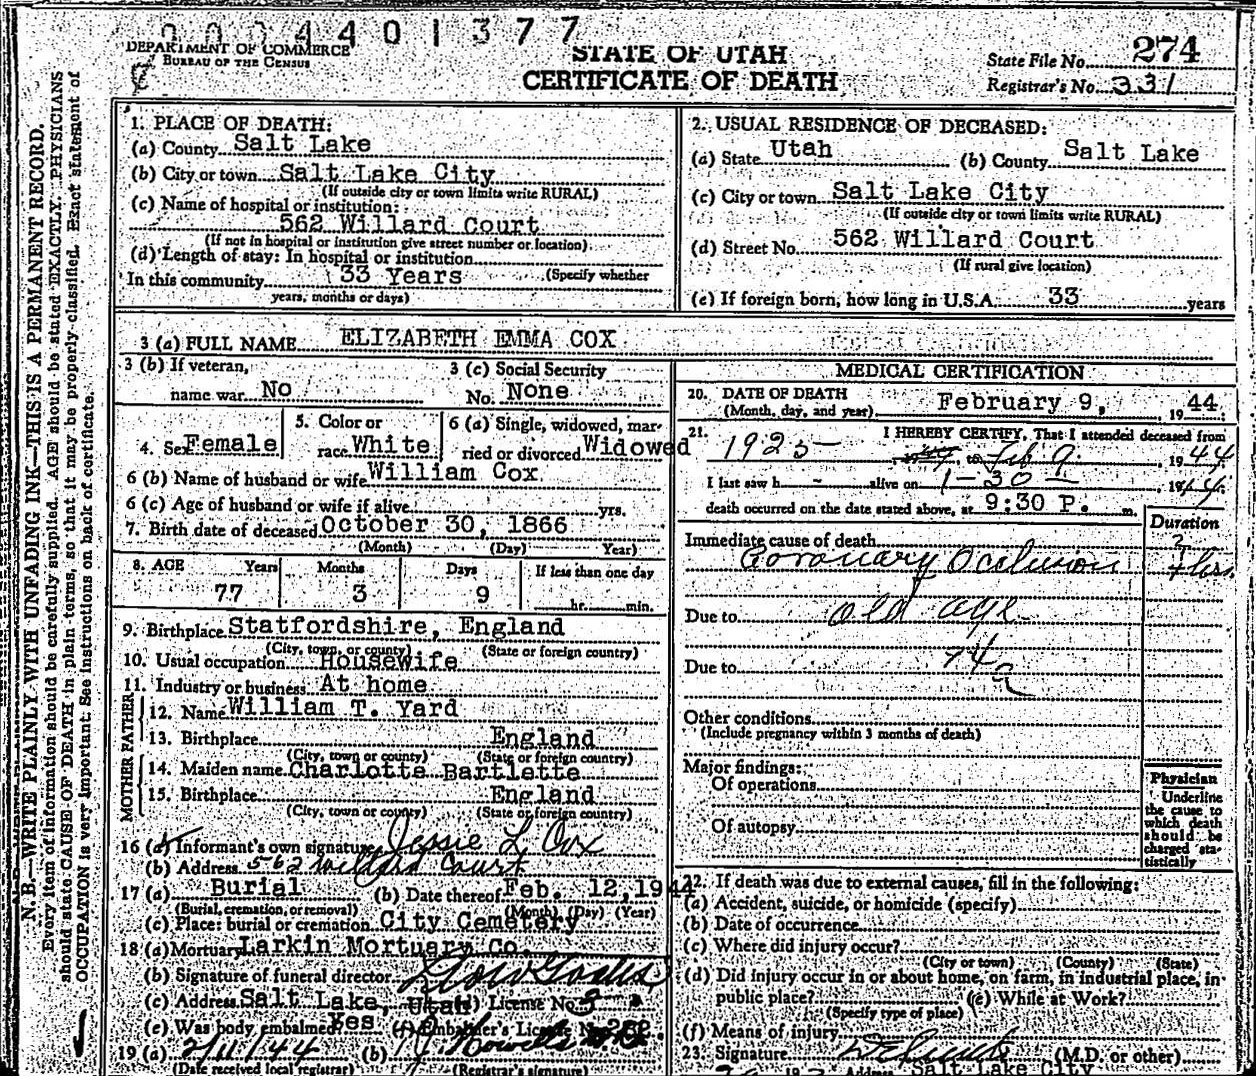 0004401377
DEPARTMENT OF COMMERCE
BUREAU OF THE CENSUS
STATE OF UTAH
CERTIFICATE OF DEATH
State File No. 274
Registrar's No. 331
N. B.—WRITE PLAINLY WITH UNFADING INK—THIS IS A PERMANENT RECORD.
Every item of information should be carefully supplied. AGE should be stated EXACTLY. PHYSICIANS
should state CAUSE OF DEATH in plain terms, so that it may be properly classified. Exact statement of
OCCUPATION is very important. See instructions on back of certificate.
1. PLACE OF DEATH:
(a) County Salt Lake
(b) City or town Salt Lake City
(If outside city or town limits write RURAL)
(c) Name of hospital or institution:
562 Willard Court
(If not in hospital or institution give street number or location)
(d) Length of stay: In hospital or institution
In this community 33 Years (Specify whether
years, months or days)
2. USUAL RESIDENCE OF DECEASED:
(a) State Utah (b) County Salt Lake
(c) City or town Salt Lake City
(If outside city or town limits write RURAL)
(d) Street No. 562 Willard Court
(If rural give location)
(e) If foreign born, how long in U.S.A. 33 years
3 (a) FULL NAME ELIZABETH EMMA COX
3 (b) If veteran,
name war No
3 (c) Social Security
No. None
4. Sex Female
5. Color or
race White
6 (a) Single, widowed, mar-
ried or divorced Widowed
6 (b) Name of husband or wife William Cox
6 (c) Age of husband or wife if alive yrs.
7. Birth date of deceased October 30, 1866
(Month) (Day) Year)
8. AGE Years Months Days If less than one day
77 3 9 hr. min.
9. Birthplace Statfordshire, England
(City, town, or county) (State or foreign country)
10. Usual occupation Housewife
11. Industry or business At home
FATHER
12. Name William T. Yard
13. Birthplace England
(City, town or county) (State or foreign country)
MOTHER
14. Maiden name Charlotte Bartlette
15. Birthplace England
(City, town or county) (State or foreign country)
16 (a) Informant's own signature Jessie L. Cox
(b) Address 562 Willard Court
17 (a) Burial (b) Date thereof Feb. 12, 1944
(Burial, cremation, or removal) (Month) (Day) (Year)
(c) Place: burial or cremation City Cemetery
18 (a) Mortuary Larkin Mortuary Co.
(b) Signature of funeral director
(c) Address Salt Lake, Utah License No. 3
(e) Was body embalmed Yes (f) Embalmer's License No.
19 (a) 2/11/44 (b)
(Date received local registrar) (Registrar's signature)
MEDICAL CERTIFICATION
20. DATE OF DEATH
(Month, day, and year) February 9, 1944
21. I HEREBY CERTIFY, That I attended deceased from
1925 — to Feb 9 1944
I last saw h - alive on 1-30- 1944
death occurred on the date stated above, at 9:30 P. m.
Duration
Immediate cause of death
Coronary Occlusion
Due to old age
Due to
94a
Other conditions
(Include pregnancy within 3 months of death)
Major findings:
Of operations
Of autopsy
Physician
Underline
the cause to
which death
should be
charged sta-
tistically
22. If death was due to external causes, fill in the following:
(a) Accident, suicide, or homicide (specify)
(b) Date of occurrence
(c) Where did injury occur?
(City or town) (County) (State)
(d) Did injury occur in or about home, on farm, in industrial place, in
public place? (e) While at Work?
(Specify type of place)
(f) Means of injury
23. Signature (M.D. or other)
Address Salt Lake City